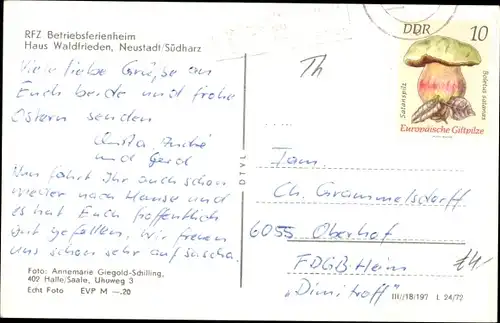 RFZ Betriebsferienheim
Haus Waldfrieden, Neustadt/Südharz
Viele liebe Grüße an
Euch beide und frohe
Ostern senden
André
und Gerd
Nun fahrt Ihr auch schon
wieder nach Hause und
es hat Euch hoffentlich
gut gefallen. Wir freuen
uns schon sehr auf Sascha.
Foto: Annemarie Giegold-Schilling,
402 Halle/Saale, Uhuweg 3
Echt Foto EVP M —.20
DTVL
Th
DDR 10
Satanspilz
Boletus satanas
Europäische Giftpilze
Fam.
Ch. Grammelsdorff
6055 Oberhof
FDGB-Heim
„Dimitroff"
III/18/197 L 24/72